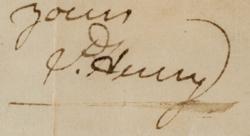 yours
J. Henry